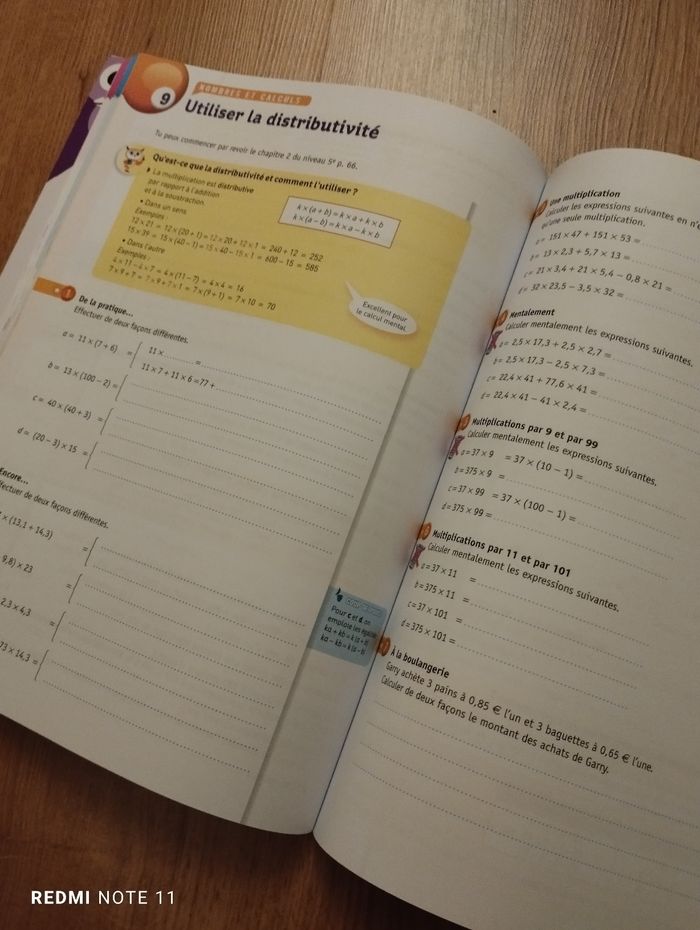 9
NOMBRES ET CALCULS
Utiliser la distributivité
Tu peux commencer par revoir le chapitre 2 du niveau 5e p. 66.
Qu'est-ce que la distributivité et comment l'utiliser ?
La multiplication est distributive
par rapport à l'addition
et à la soustraction.
k × (a + b) = k × a + k × b
k × (a – b) = k × a – k × b
• Dans un sens
Exemples :
12 × 21 = 12 × (20 + 1) = 12 × 20 + 12 × 1 = 240 + 12 = 252
15 × 39 = 15 × (40 – 1) = 15 × 40 – 15 × 1 = 600 – 15 = 585
• Dans l'autre
Exemples :
4 × 11 – 4 × 7 = 4 × (11 – 7) = 4 × 4 = 16
7 × 9 + 7 = 7 × 9 + 7 × 1 = 7 × (9 + 1) = 7 × 10 = 70
Excellent pour
le calcul mental.
1 De la pratique...
Effectuer de deux façons différentes.
a = 11 × (7 + 6) =
11 × ........ = ........
11 × 7 + 11 × 6 = 77 + ........
b = 13 × (100 – 2) =
c = 40 × (40 + 3) =
d = (20 – 3) × 15 =
Encore...
fectuer de deux façons différentes.
× (13,1 + 14,3) =
9,8) × 23 =
2,3 × 4,3 =
73 × 14,3 =
Pour c et d on
emploie les égalités
ka + kb = k(a + b)
ka – kb = k(a – b)
Une multiplication
Calculer les expressions suivantes en n'e
qu'une seule multiplication.
a = 151 × 47 + 151 × 53 =
b = 13 × 2,3 + 5,7 × 13 =
c = 21 × 3,4 + 21 × 5,4 – 0,8 × 21 =
d = 32 × 23,5 – 3,5 × 32 =
Mentalement
Calculer mentalement les expressions suivantes.
a = 2,5 × 17,3 + 2,5 × 2,7 =
b = 2,5 × 17,3 – 2,5 × 7,3 =
c = 22,4 × 41 + 77,6 × 41 =
d = 22,4 × 41 – 41 × 2,4 =
Multiplications par 9 et par 99
Calculer mentalement les expressions suivantes.
a = 37 × 9 = 37 × (10 – 1) =
b = 375 × 9 =
c = 37 × 99 = 37 × (100 – 1) =
d = 375 × 99 =
Multiplications par 11 et par 101
Calculer mentalement les expressions suivantes.
a = 37 × 11 =
b = 375 × 11 =
c = 37 × 101 =
d = 375 × 101 =
À la boulangerie
Garry achète 3 pains à 0,85 € l'un et 3 baguettes à 0,65 € l'une.
Calculer de deux façons le montant des achats de Garry.
REDMI NOTE 11